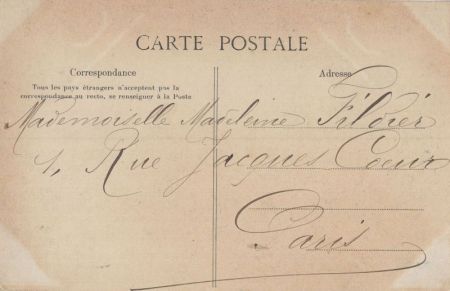 CARTE POSTALE
Correspondance
Tous les pays étrangers n'acceptent pas la
correspondance au recto, se renseigner à la Poste
Adresse
Mademoiselle Madeleine
1, Rue Jacques Coeur
Paris